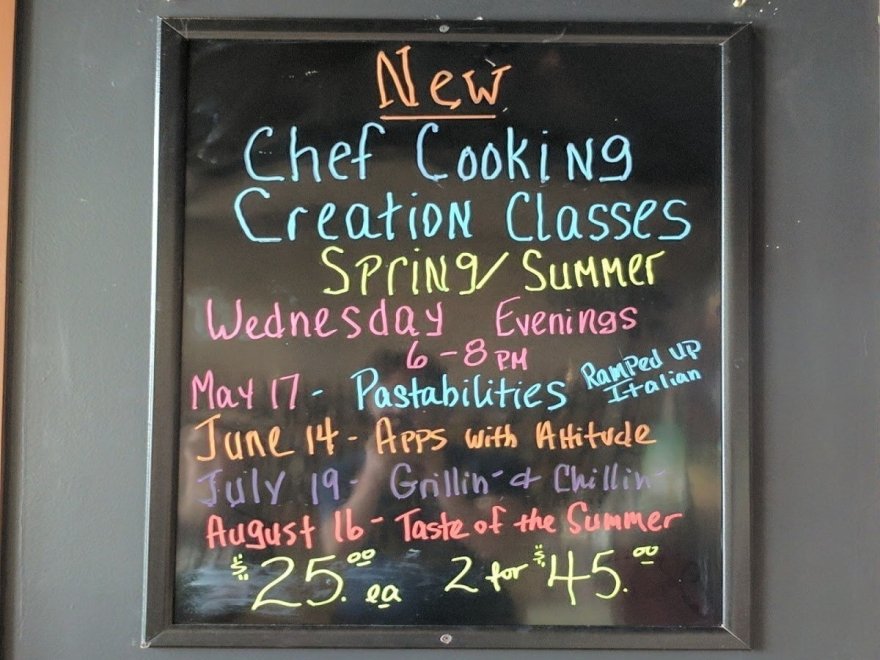 New
Chef Cooking
Creation Classes
Spring/Summer
Wednesday Evenings
6-8 PM
May 17 - Pastabilities Ramped up Italian
June 14 - Apps with Attitude
July 19 - Grillin' & Chillin'
August 16 - Taste of the Summer
$25.00 ea 2 for $45.00